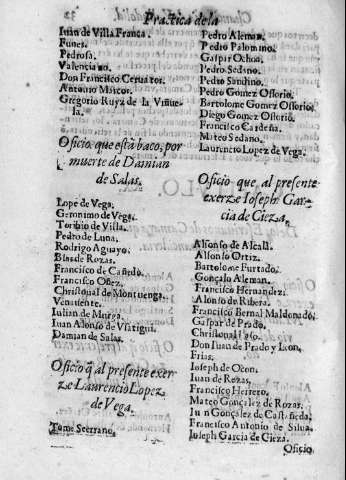 Practica de la
Iuan de Villa Franca.
Funes.
Pedrosa.
Valenciano.
Don Francisco Ceruatos.
Antonio Marcos.
Gregorio Ruyz de la Viñuela.
Oficio, que està baco, por
muerte de Damian
de Salas.
Lope de Vega.
Geronimo de Vega.
Toribio de Villa.
Pedro de Luna.
Rodrigo Aguayo.
Blas de Rozas.
Francisco de Cañedo.
Francisco Oñez.
Christoual de Montuenga.
Venauente.
Iulian de Murga.
Iuan Alonso de Viatigui.
Damian de Salas.
Oficio q̃ al presente exer-
ze Laurencio Lopez
de Vega.
Tome Serrano.
Pedro Aleman.
Pedro Palomino.
Gaspar Ochoa.
Pedro Sedano.
Pedro Sandino.
Pedro Gomez Ossorio.
Bartolome Gomez Ossorio.
Diego Gomez Ossorio.
Francisco Cardeña.
Mateo Sedano.
Laurencio Lopez de Vega.
Oficio que al presente
exerze Ioseph Gar-
cia de Cieza.
Alfonso de Alcalà.
Alfonso Ortiz.
Bartolome Furtado.
Gonçalo Aleman.
Francisco Hernandez.
Alonso de Ribera.
Francisco Bernal Maldonado.
Gaspar de Prado.
Christoual
Don Iuan de Prado y Leon.
Frias.
Ioseph de Ocon.
Iuan de Rezas.
Francisco Herrero.
Mateo Gonçalez de Rozas.
Iuan Gonçalez de Castañeda.
Francisco Antonio de Silua.
Ioseph Garcia de Cieza.
Oficio